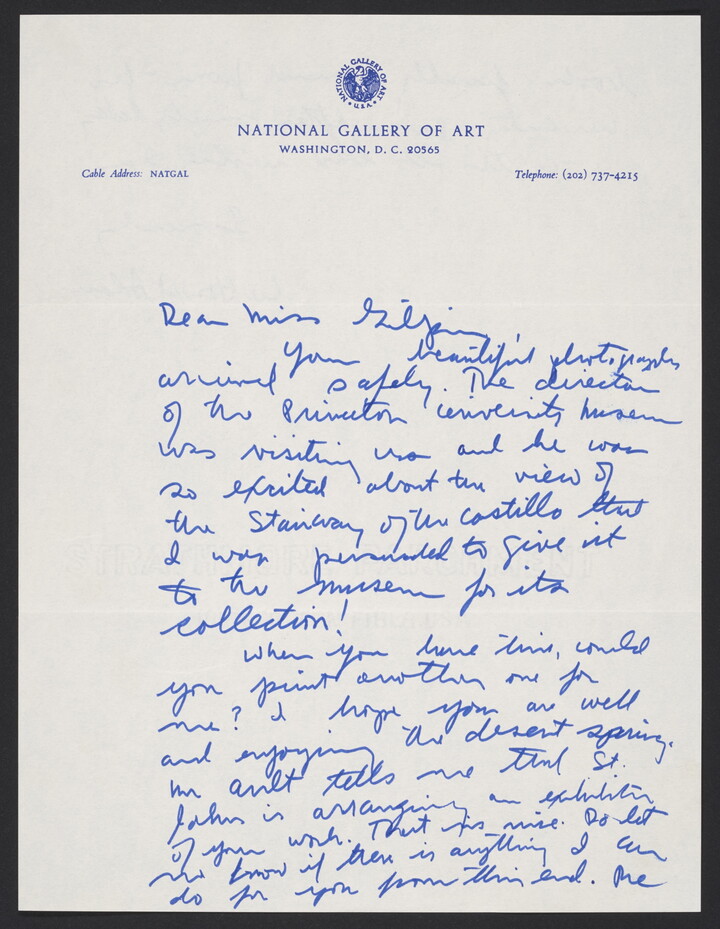 NATIONAL GALLERY OF ART
U.S.A.
NATIONAL GALLERY OF ART
WASHINGTON, D. C. 20565
Cable Address: NATGAL
Telephone: (202) 737-4215
Dear Miss Gilpin,
Your beautiful photographs
arrived safely. The director
of the Princeton University Museum
was visiting us and he was
so excited about the view of
the Stairway of the Castillo that
I was persuaded to give it
to the museum for its
collection!
When you have time, could
you print another one for
me? I hope you are well
and enjoying the desert spring.
Mr Ault tells me that St.
Johns is arranging an exhibition
of your work. That is nice. Do let
me know if there is anything I can
do for you from this end. The